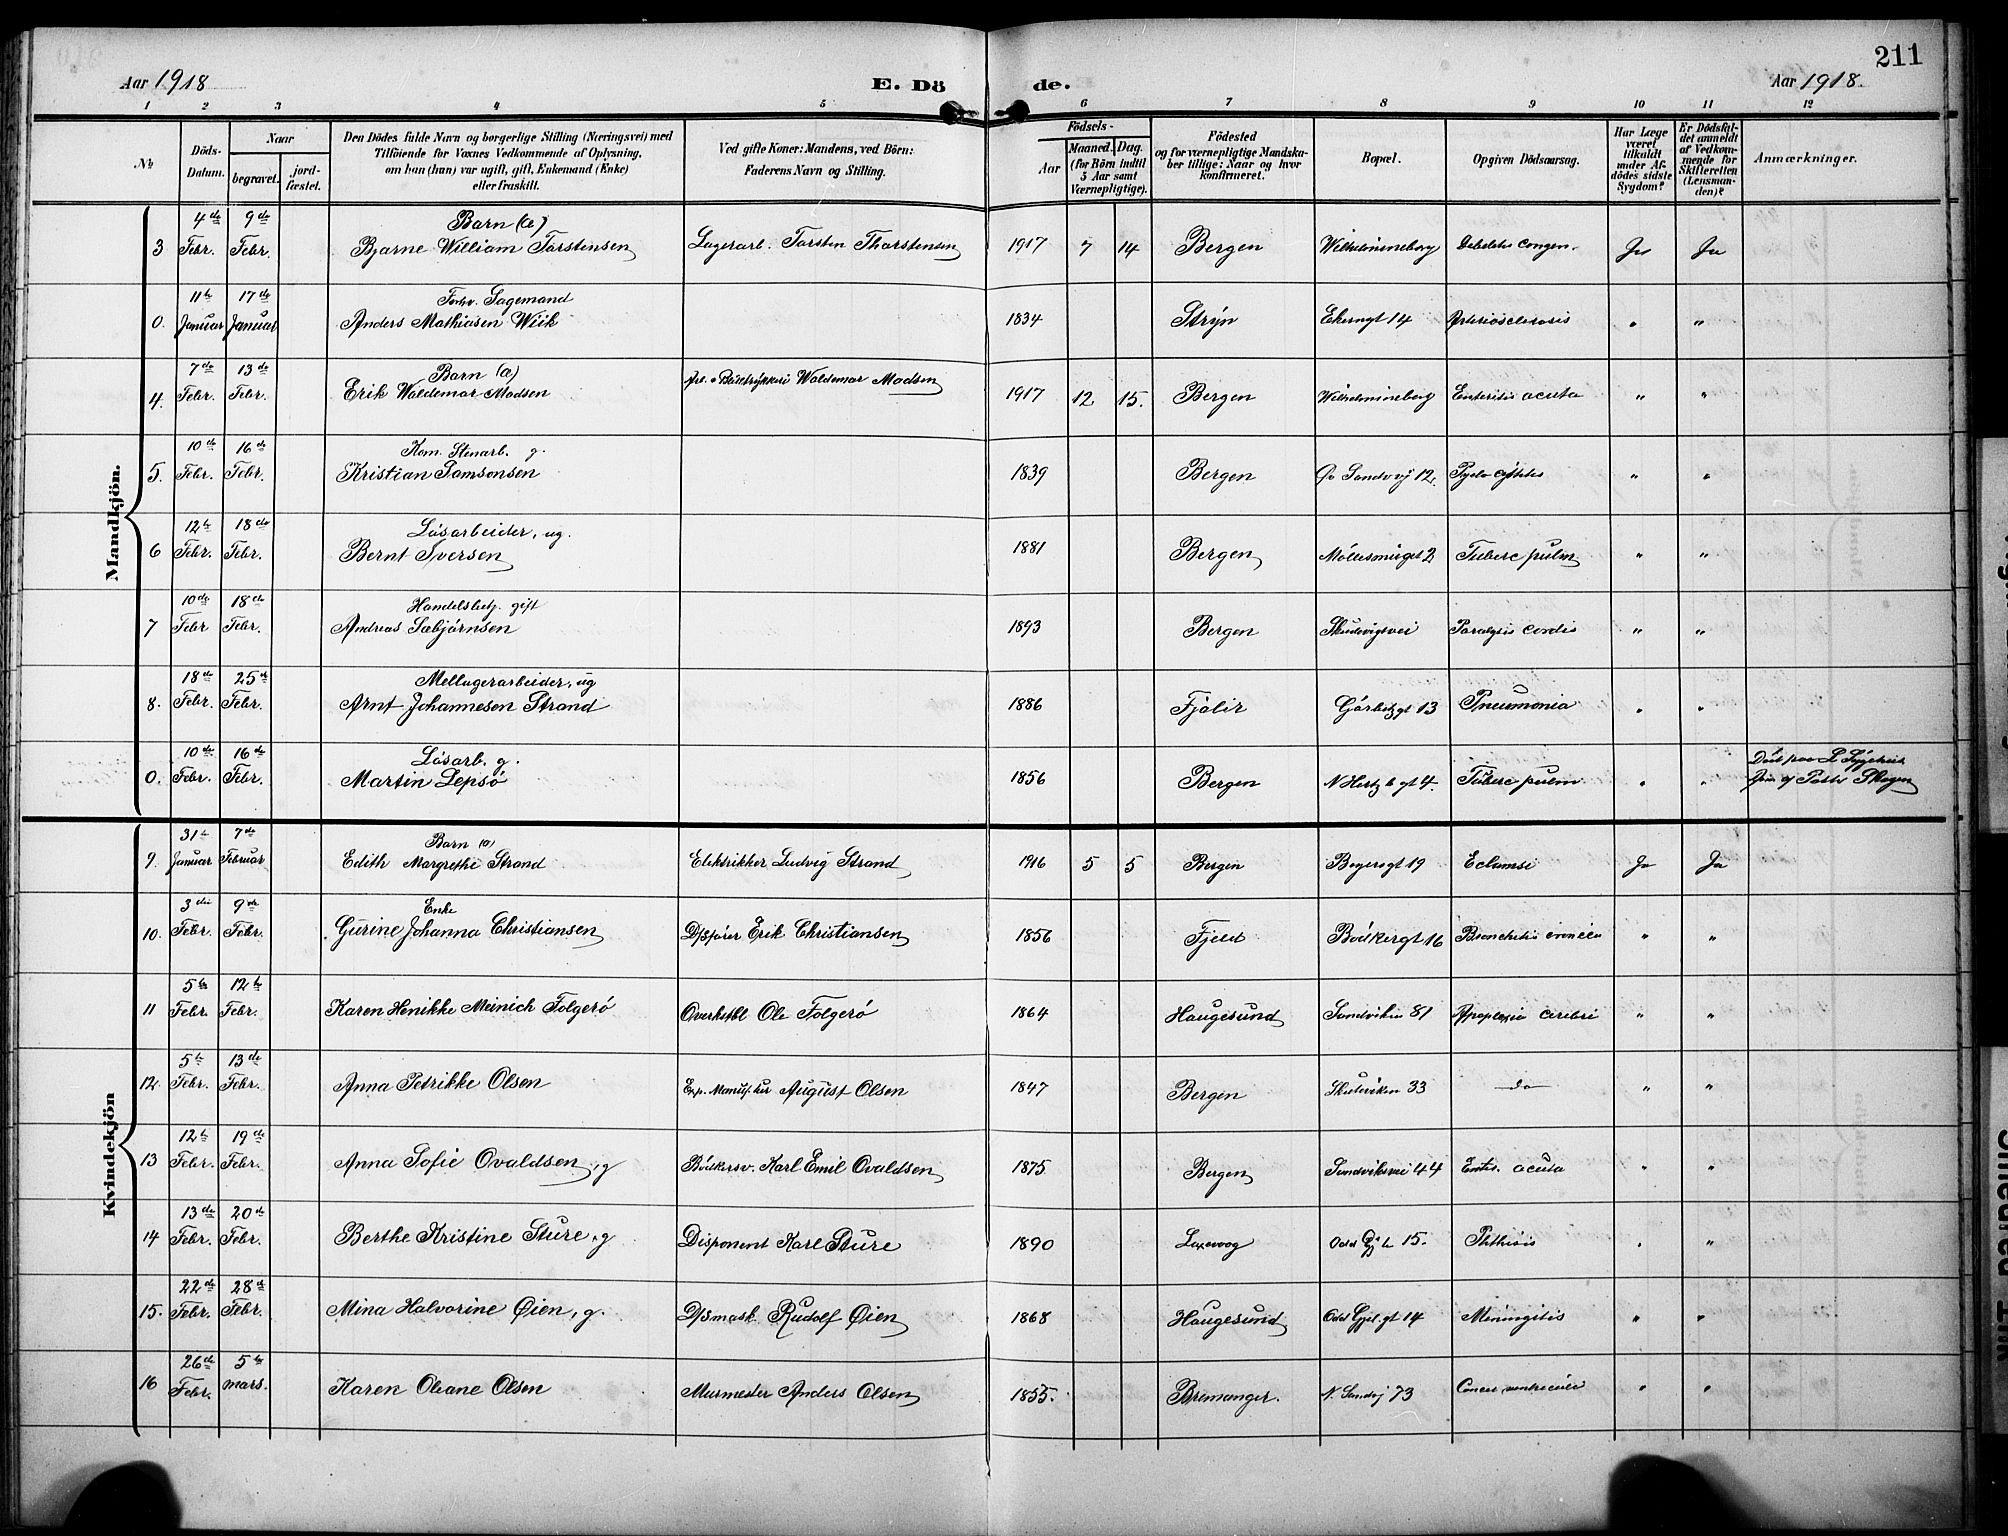 211
Aar 1918
E. Dö
de.
Aar 1918.
1 2 3 4 5 6 7 8 9 10 11 12
No
Döds-
Datum.
Naar
begravet.
jord-
fæstet.
Den Dödes fulde Navn og borgerlige Stilling (Næringsvei) med
Tilföiende for Voxnes Vedkommende af Oplysning,
om han (hun) var ugift, gift, Enkemand (Enke)
eller fraskilt.
Ved gifte Koner: Mandens, ved Börn:
Faderens Navn og Stilling.
Födsels-
Aar
Maaned. Dag.
(for Börn indtil
5 Aar samt
Værnepligtige).
Födested
og for værnepligtige Mandska-
ber tillige: Naar og hvor
konfirmeret.
Bopæl.
Opgiven Dödsaarsag.
Har Læge
været
tilkaldt
under Af-
dödes sidste
Sygdom?
Er Dödsfal-
det anmeldt
af Vedkom-
mende for
Skifteretten
(Lensman-
den)?
Anmærkninger.
Mandkjön.
4de 9de Barn (æ)
3 Febr. Febr. Bjarne William Torstensen Lagerarb. Torsten Thorstensen 1917 7 14 Bergen Wilhelmineborg Debilitas congen. Ja Ja
11te 17de Forhv. Sagemand
0. Januar Januar Anders Mathiasen Wiik 1834 Stryn Ekerngt 14 Arteriosclerosis " "
7de 13de Barn (æ)
4. Febr. Febr. Erik Waldemar Madsen Waldemar Madsen 1917 12 15. Bergen Wilhelmineborg Enteritis acuta " "
10de 16de Kom. Stenarb. g.
5. Febr. Febr. Kristian Samsonsen 1839 Bergen Øv Sandvvj 12. " "
12te 18de Løsarbeider, ug.
6 Febr. Febr. Bernt Iversen 1881 Bergen 2 Tuberc pulm " "
10de 18de gift
7 Febr Febr. Andreas Sæbjørnsen 1893 Bergen Skudevigsvei Paralysis cordis " "
18de 25de Mellagerarbeider, ug
8. Febr. Febr. Arnt Johannesen Strand 1886 Fjalir 13 Pneumonia " "
10de 16de Løsarb. g.
0. Febr. Febr. Martin Lepsø 1856 Bergen N Hertz b gt 4. Tuberc pulm " " Død paa
Skagen
Kvindekjön
31te 7de Barn
9. Januar Februar Edith Margrethe Strand Elektrikker Ludvig Strand 1916 5 5 Bergen Bøgersgt 19 Eclamsi Ja Ja
3die 9de Enke
10. Febr. Febr. Gurine Johanna Christiansen D/sfører Erik Christiansen 1856 Fjeld Bødkergt 16 Bronchitis cronica " "
5te 12te
11 Febr. Febr. Karen Henikke Meinich Folgerø Ole Folgerø 1864 Haugesund Sandviken 81 Apoplexia cerebri " "
5te 13de
12. Febr. Febr. Anna Petrikke Olsen August Olsen 1847 Bergen Skuteviken 33 do " "
12te 19de
13 Febr. Febr. Anna Sofie Ovaldsen, g Bødkersv. Karl Emil Ovaldsen 1875 Bergen Sandviksvei 44 Enter. acuta " "
13de 20de
14 Febr. Febr. Berthe Kristine Sture, g Disponent Karl Sture 1890 Laxevaag 15. Phthisis " "
22de 28de
15. Febr. Febr. Mina Halvorine Øien, g. D/Smask. Rudolf Øien 1868 Haugesund Odd Gjel. gt 14 Meningitis " "
26de 5te
16 Febr. mars. Karen Oleane Olsen Murmester Anders Olsen 1855. Bremanger. N. Sandvj 73 Cancer ventriculi " "